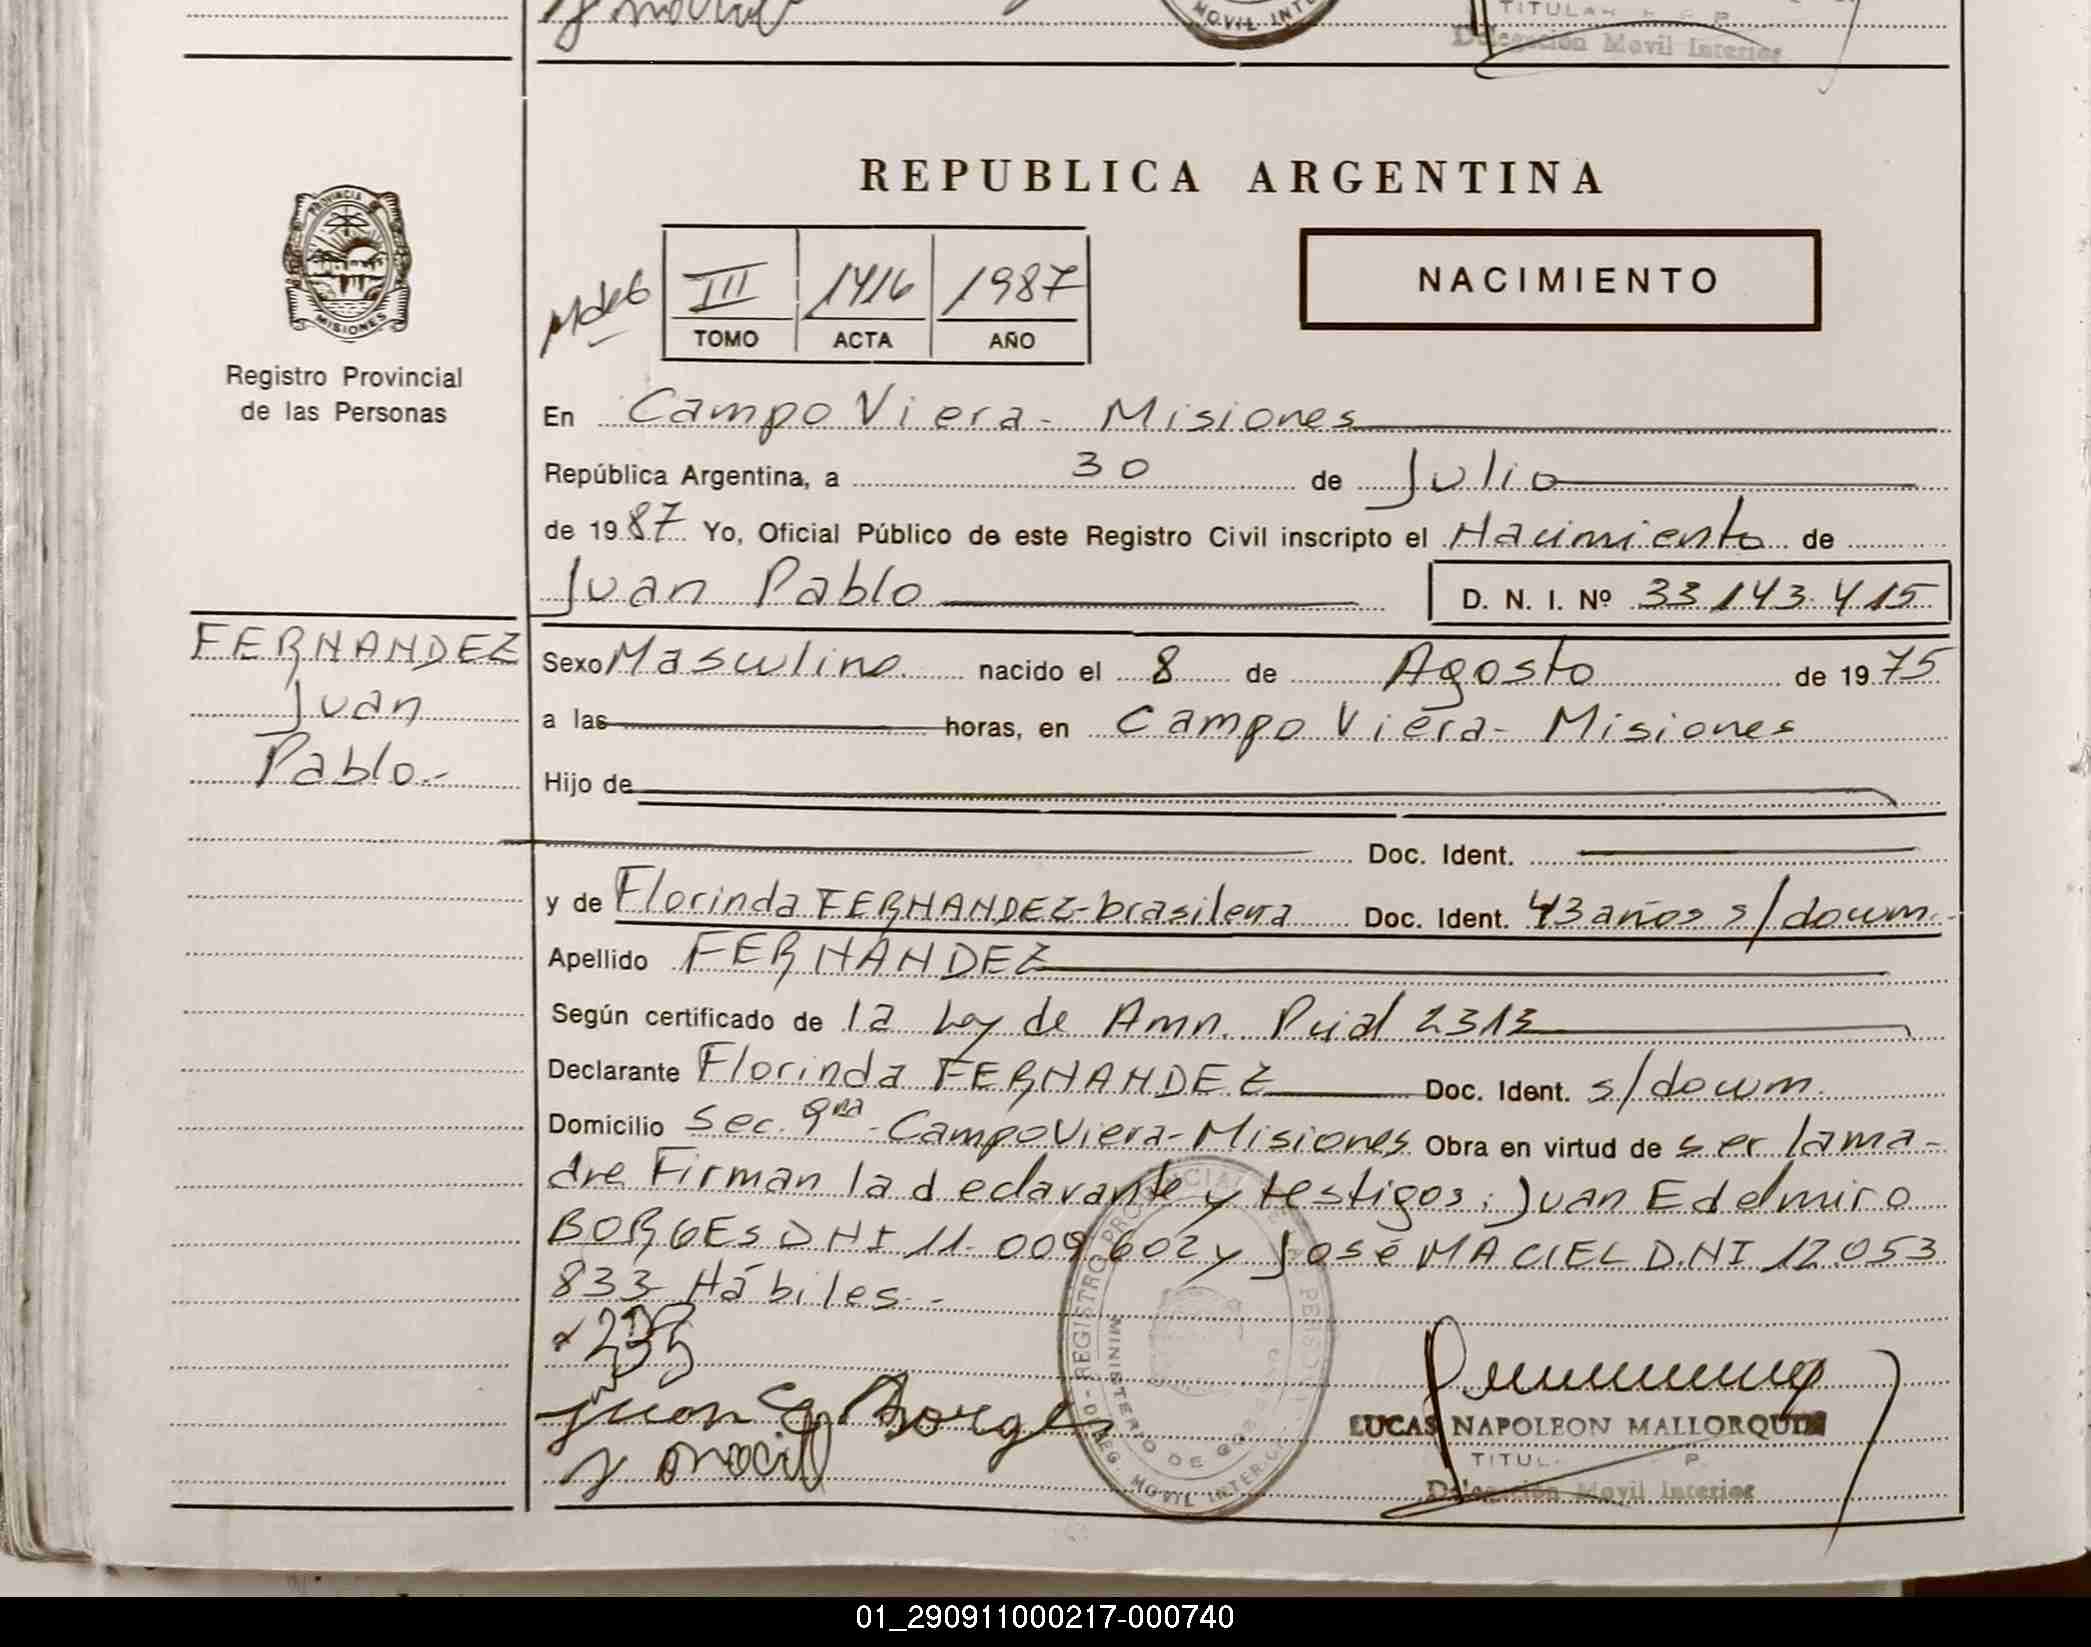 Delegación Movil Interior
REPUBLICA ARGENTINA
PROVINCIA DE
MISIONES
Registro Provincial
de las Personas
III 1416 1987
TOMO ACTA AÑO
NACIMIENTO
En Campo Viera - Misiones
República Argentina, a 30 de Julio
de 1987 Yo, Oficial Público de este Registro Civil inscripto el Nacimiento de
Juan Pablo D. N. I. Nº 33.143.415
FERNANDEZ
Juan
Pablo.-
Sexo Masculino nacido el 8 de Agosto de 1975
a las horas, en Campo Viera - Misiones
Hijo de
Doc. Ident.
y de Florinda FERNANDEZ - brasilera Doc. Ident. 43 años s/docum.-
Apellido FERNANDEZ
Según certificado de la Ley de Amn. Pcial 2313
Declarante Florinda FERNANDEZ Doc. Ident. s/docum.
Domicilio Sec. 9na - Campo Viera - Misiones Obra en virtud de ser la ma-
dre Firman la declarante y testigos: Juan Edelmiro
BORGES DNI 11.009.602 y José MACIEL D.NI 12.053
833 Hábiles.-
Juan E Borges
LUCAS NAPOLEON MALLORQUIN
TITUL. P.
Delegación Movil Interior
01_290911000217-000740